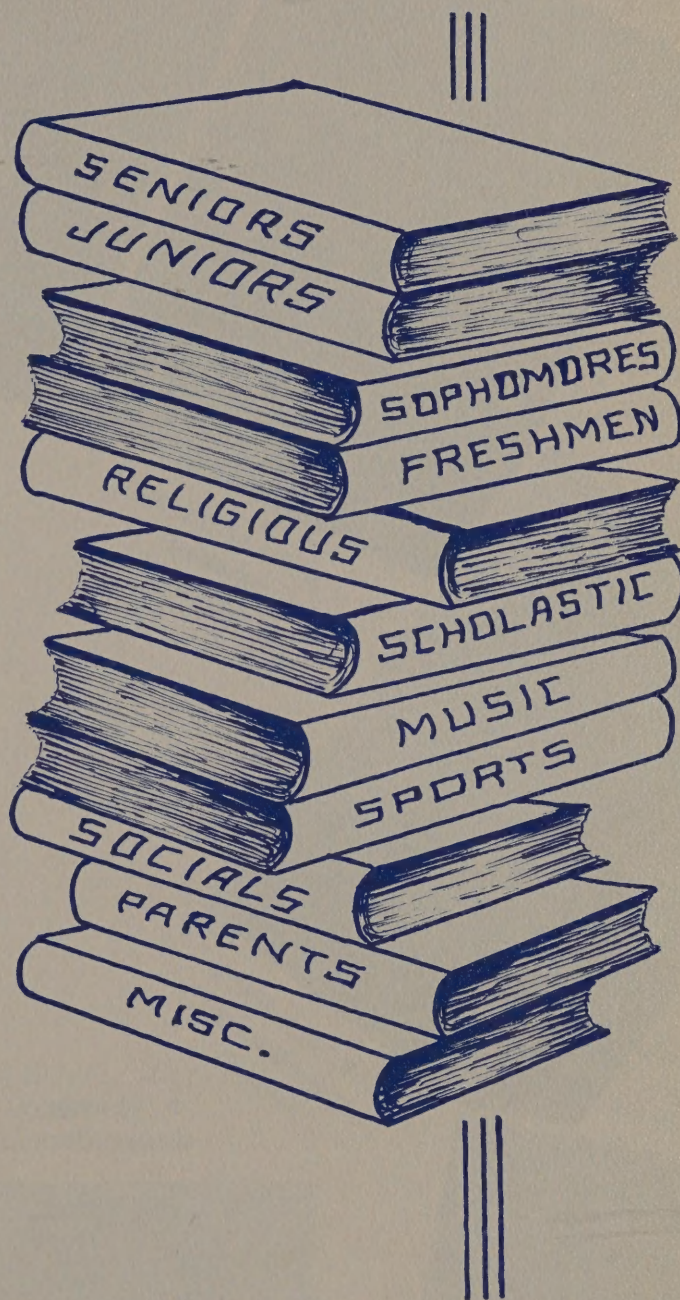 SENIORS
JUNIORS
SOPHOMORES
FRESHMEN
RELIGIOUS
SCHOLASTIC
MUSIC
SPORTS
SOCIALS
PARENTS
MISC.